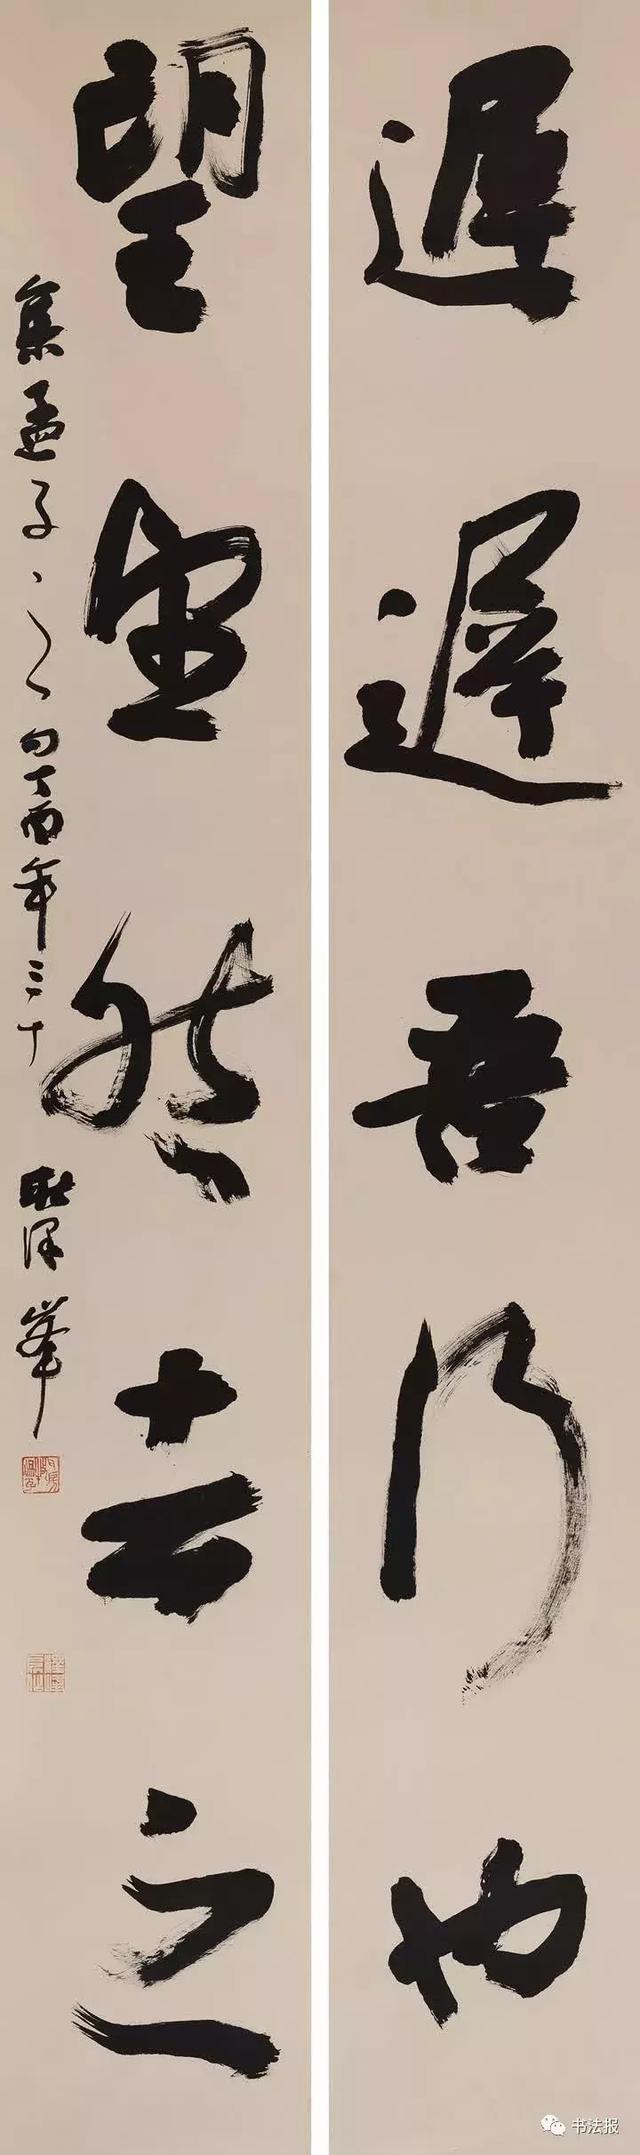 遲遲吾行也
望望然去之
集孟子之句丁酉年三十
書法报